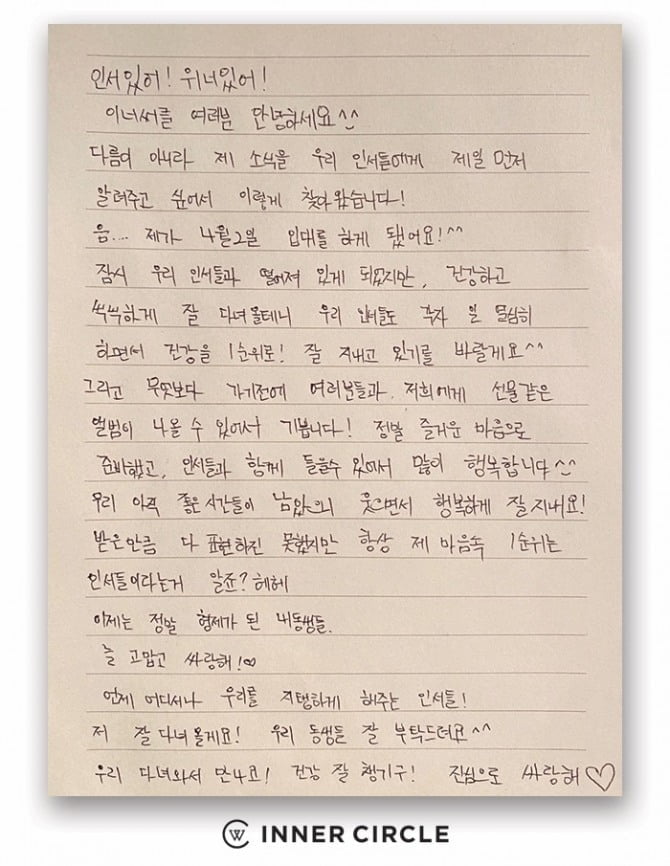 인서있어! 위너있어!
이너써클 여러분 안녕하세요^^
다름이 아니라 제 소식을 우리 인서들에게 제일 먼저
알려주고 싶어서 이렇게 찾아왔습니다!
음... 제가 4월2일 입대를 하게 됐어요!^^
잠시 우리 인서들과 떨어져 있게 되었지만, 건강하고
씩씩하게 잘 다녀올테니 우리 인서들도 각자 일 열심히
하면서 건강을 1순위로! 잘 지내고 있기를 바랄게요^^
그리고 무엇보다 가기전에 여러분들과. 저희에게 선물같은
앨범이 나올 수 있어서 기쁩니다! 정말 즐거운 마음으로
준비했고, 인서들과 함께 들을수 있어서 많이 행복합니다^^
우리 아직 좋은시간들이 남았으니 웃으면서 행복하게 잘지내요!
받은만큼 다 표현하진 못했지만 항상 제 마음속 1순위는
인서들이라는거 알죠? 헤헤
이제는 정말 형제가 된 내동생들.
늘 고맙고 싸랑해!♡
언제 어디서나 우리를 지탱하게 해주는 인서들!
저 잘 다녀올게요! 우리 동생들 잘 부탁드려요^^
우리 다녀와서 만나고! 건강 잘 챙기구! 진심으로 싸랑해♡
INNER CIRCLE